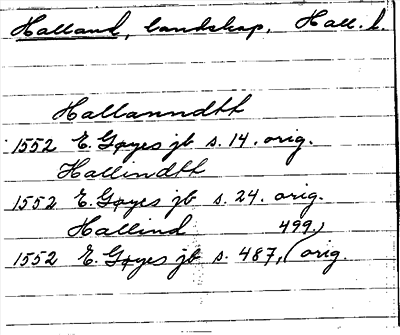 Halland, landskap, Hall. l.
Hallanndtt
1552 E. Gøyes jb s. 14. orig.
Hallindtt
1552 E. Gøyes jb s. 24. orig.
Hallind 499,)
1552 E. Gøyes jb s. 487, (orig.